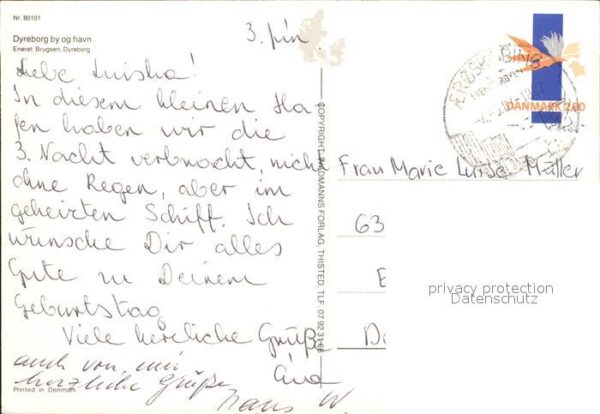 Nr. 60101
Dyreborg by og havn
Eneret: Brugsen, Dyreborg
3. Juni
Liebe Luisha!
In diesem kleinen Ha
fen haben wir die
3. Nacht verbracht, nicht
ohne Regen, aber im
geheizten Schiff. Ich
wünsche Dir alles
Gute zu Deinem
Geburtstag
Viele herzliche Grüße
auch von mir
herzliche Grüße
Hans W.
Printed in Denmark
COPYRIGHT FORLAG, THISTED. TLF. 07 92
DANMARK 2.80
Frau Marie Luise Müller
63
E
D
privacy protection
Datenschutz